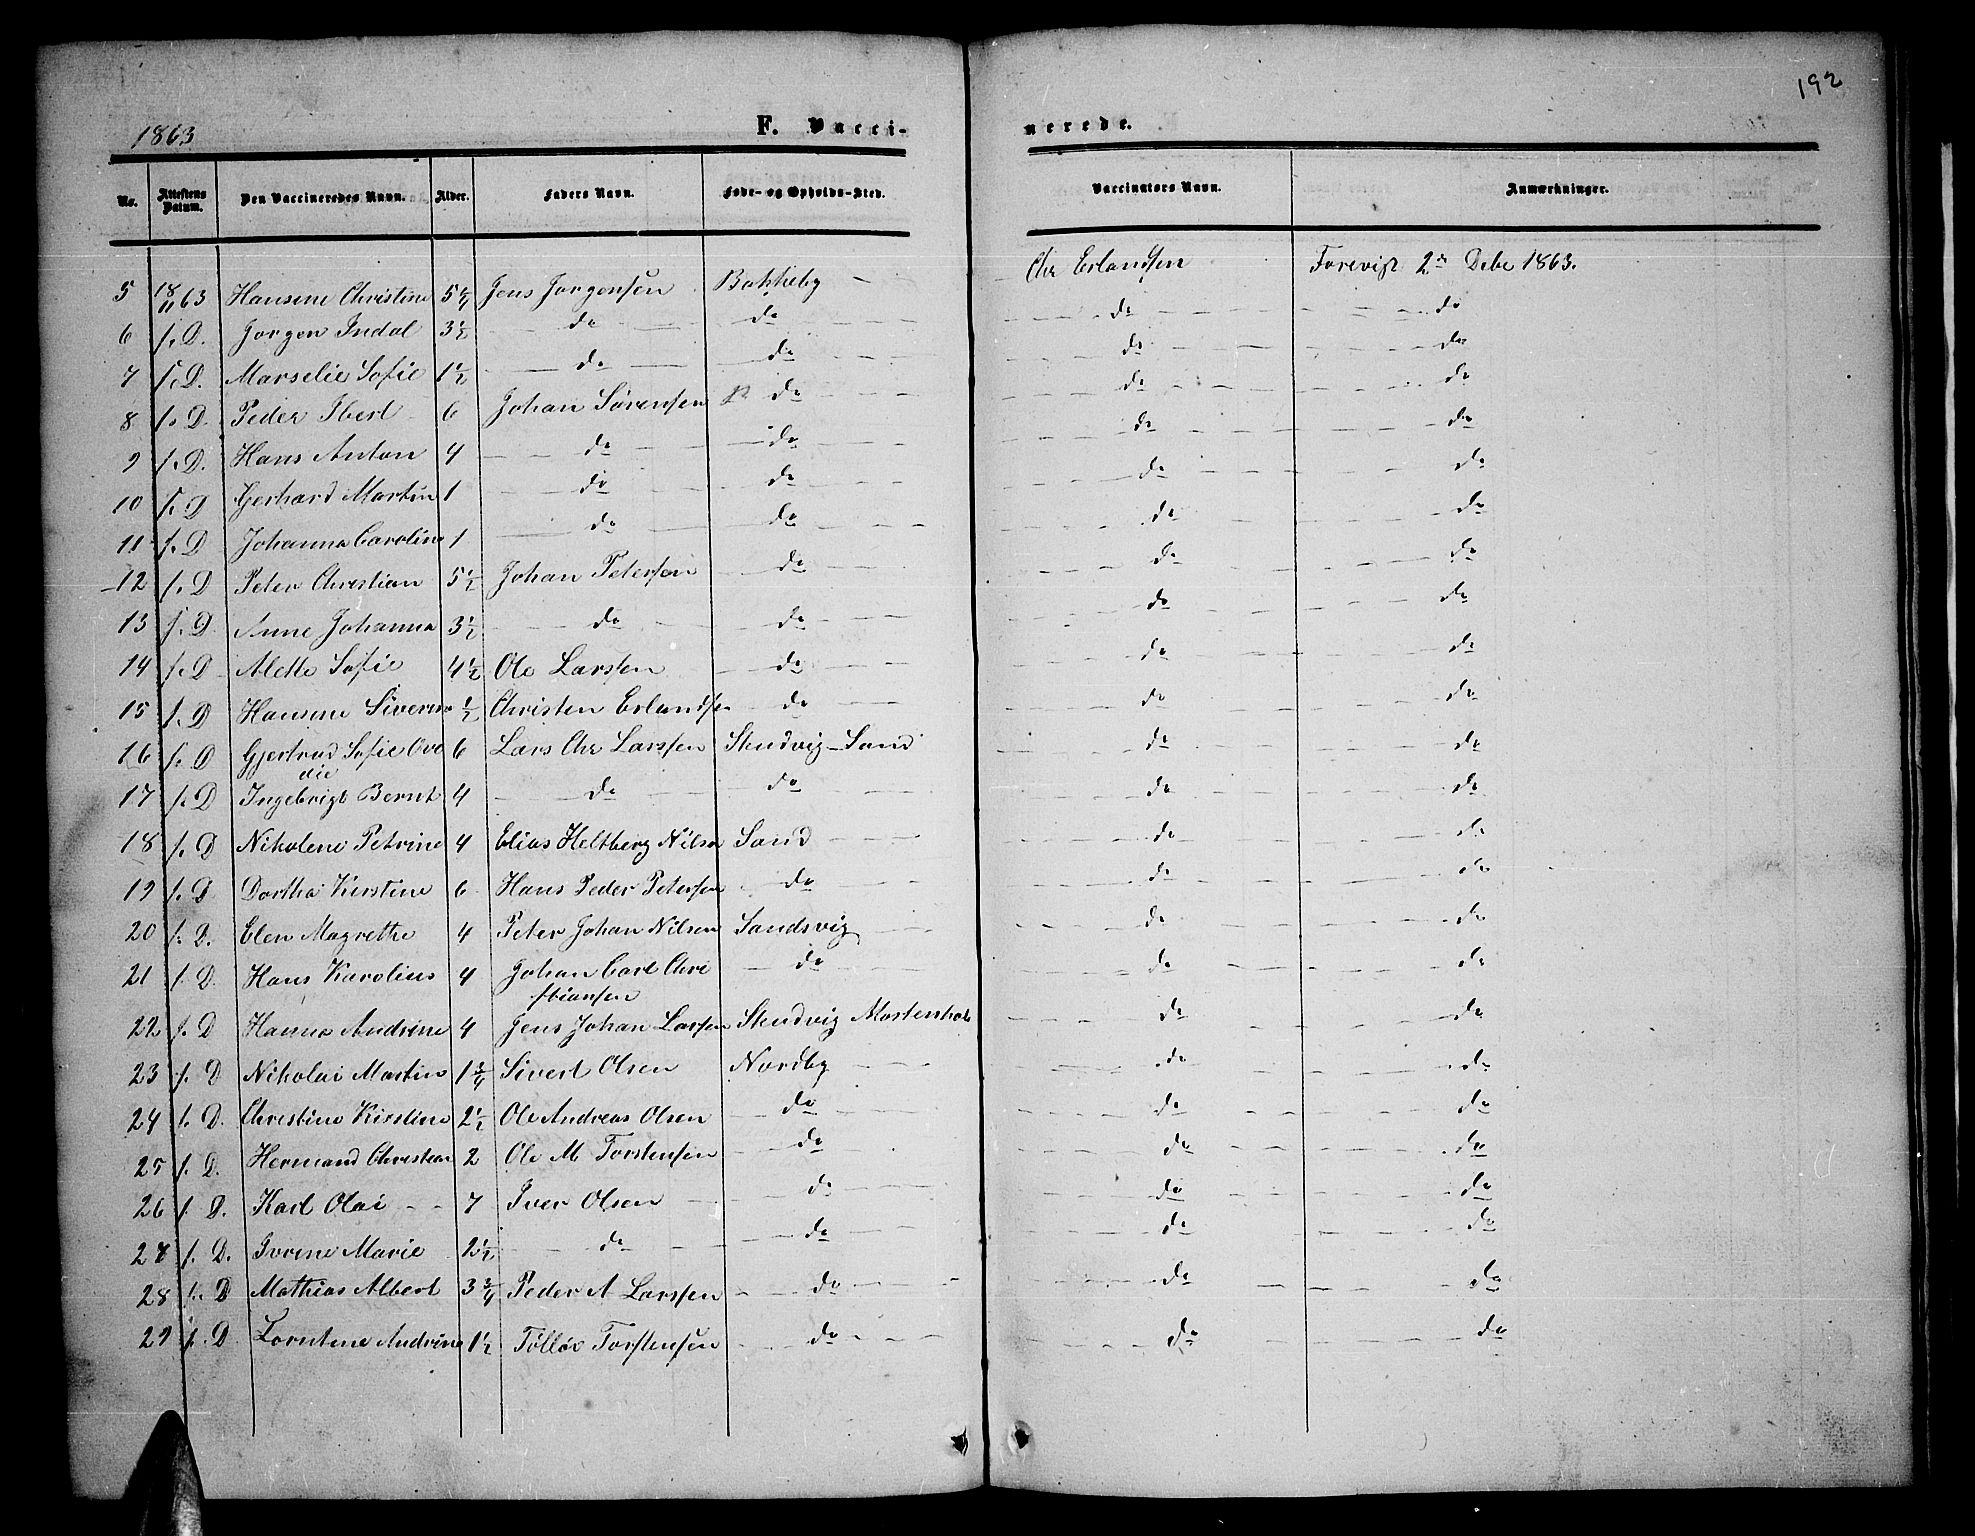 192
1863 F. Vacci- nerede.
No. Attestens Datum. Den Vaccineredes Navn. Alder. Faders Navn. Føde- og Opholds-Sted. Vaccinators Navn. Anmærkninger.
5 18/11 63 Hansine Christine 5 Jens Jørgensen Bakkeby Chr Erlandsen Forevist 2 Debr 1863.
6 s. D. Jørgen Indal 3 1/2 do do do do
7 s. D. Marselie Sofie 1 1/2 do do do do
8 s. D. Peder Ibert 6 Johan Sørensen do do do
9 s. D. Hans Anton 4 do do do do
10 s. D Gerhard Martin 1 do do do do
11 s. D Johanna Caroline 1 do do do do
12 s. D Peter Christian 5 1/2 Johan Petersen do do do
13 s. D Anne Johanna 3 1/2 do do do do
14 s. D Alette Sofie 4 1/2 Ole Larssen do do do
15 s. D Hansine Siverine 1/2 Christen Erlandsen do do do
16 s. D Gjertrud Sofie Ove 6 Lars Chr Larssen Skudvig Sand do do
die
17 s. D Ingebrigt Bernt 4 do do do do
18 s. D Nikolene Petrine 4 Elias Heltberg Nilsen Sand do do
19 s. D Dorthea Kirstine 6 Hans Peder Petersen do do do
20 s. D. Elen Magrethe 4 Peter Johan Nilsen Sandsvig do do
21 s. D. Hans Karolius 4 Johan Carl Chri do do do
stiansen
22 s. D Hanna Andrine 4 Jens Johan Larsen Skudvig Mostenhol do do
23 s. D Nikolai Martin 1 3/4 Sivert Olsen Nordby do do
24 s. D. Christine Kirstine 2 1/2 Ole Andreas Olsen do do do
25 s. D. Hermand Christian 2 Ole M Torstensen do do do
26 s. D. Karl Olai 7 Iver Olsen do do do
27 s. D. Ivrine Marie 2 1/2 do do do do
28 s. D Mathias Albert 3 3/4 Peder A Larssen do do do
29 s. D Lorntine Andrine 1 1/2 Tølløv Torstensen do do do